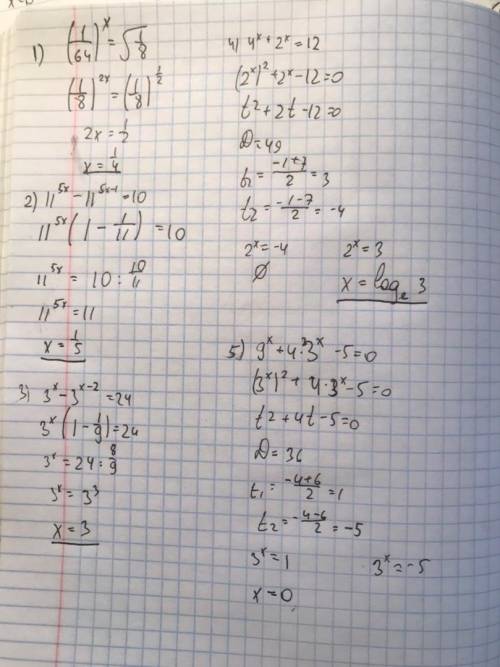 1) (1/64)^x = √(1/8)
(1/8)^2x = (1/8)^1/2
2x = 1/2
x = 1/4
2) 11^5x - 11^5x-1 = 10
11^5x (1 - 1/11) = 10
11^5x = 10 : 10/11
11^5x = 11
x = 1/5
3) 3^x - 3^x-2 = 24
3^x (1 - 1/9) = 24
3^x = 24 : 8/9
3^x = 3^3
x = 3
4) 4^x + 2^x = 12
(2^x)^2 + 2^x - 12 = 0
t^2 + 2t - 12 = 0
D = 49
t1 = (-1+7)/2 = 3
t2 = (-1-7)/2 = -4
2^x = -4 2^x = 3
∅ x = log2 3
5) 9^x + 4·3^x - 5 = 0
(3^x)^2 + 4·3^x - 5 = 0
t^2 + 4t - 5 = 0
D = 36
t1 = (-4+6)/2 = 1
t2 = (-4-6)/2 = -5
3^x = 1 3^x = -5
x = 0